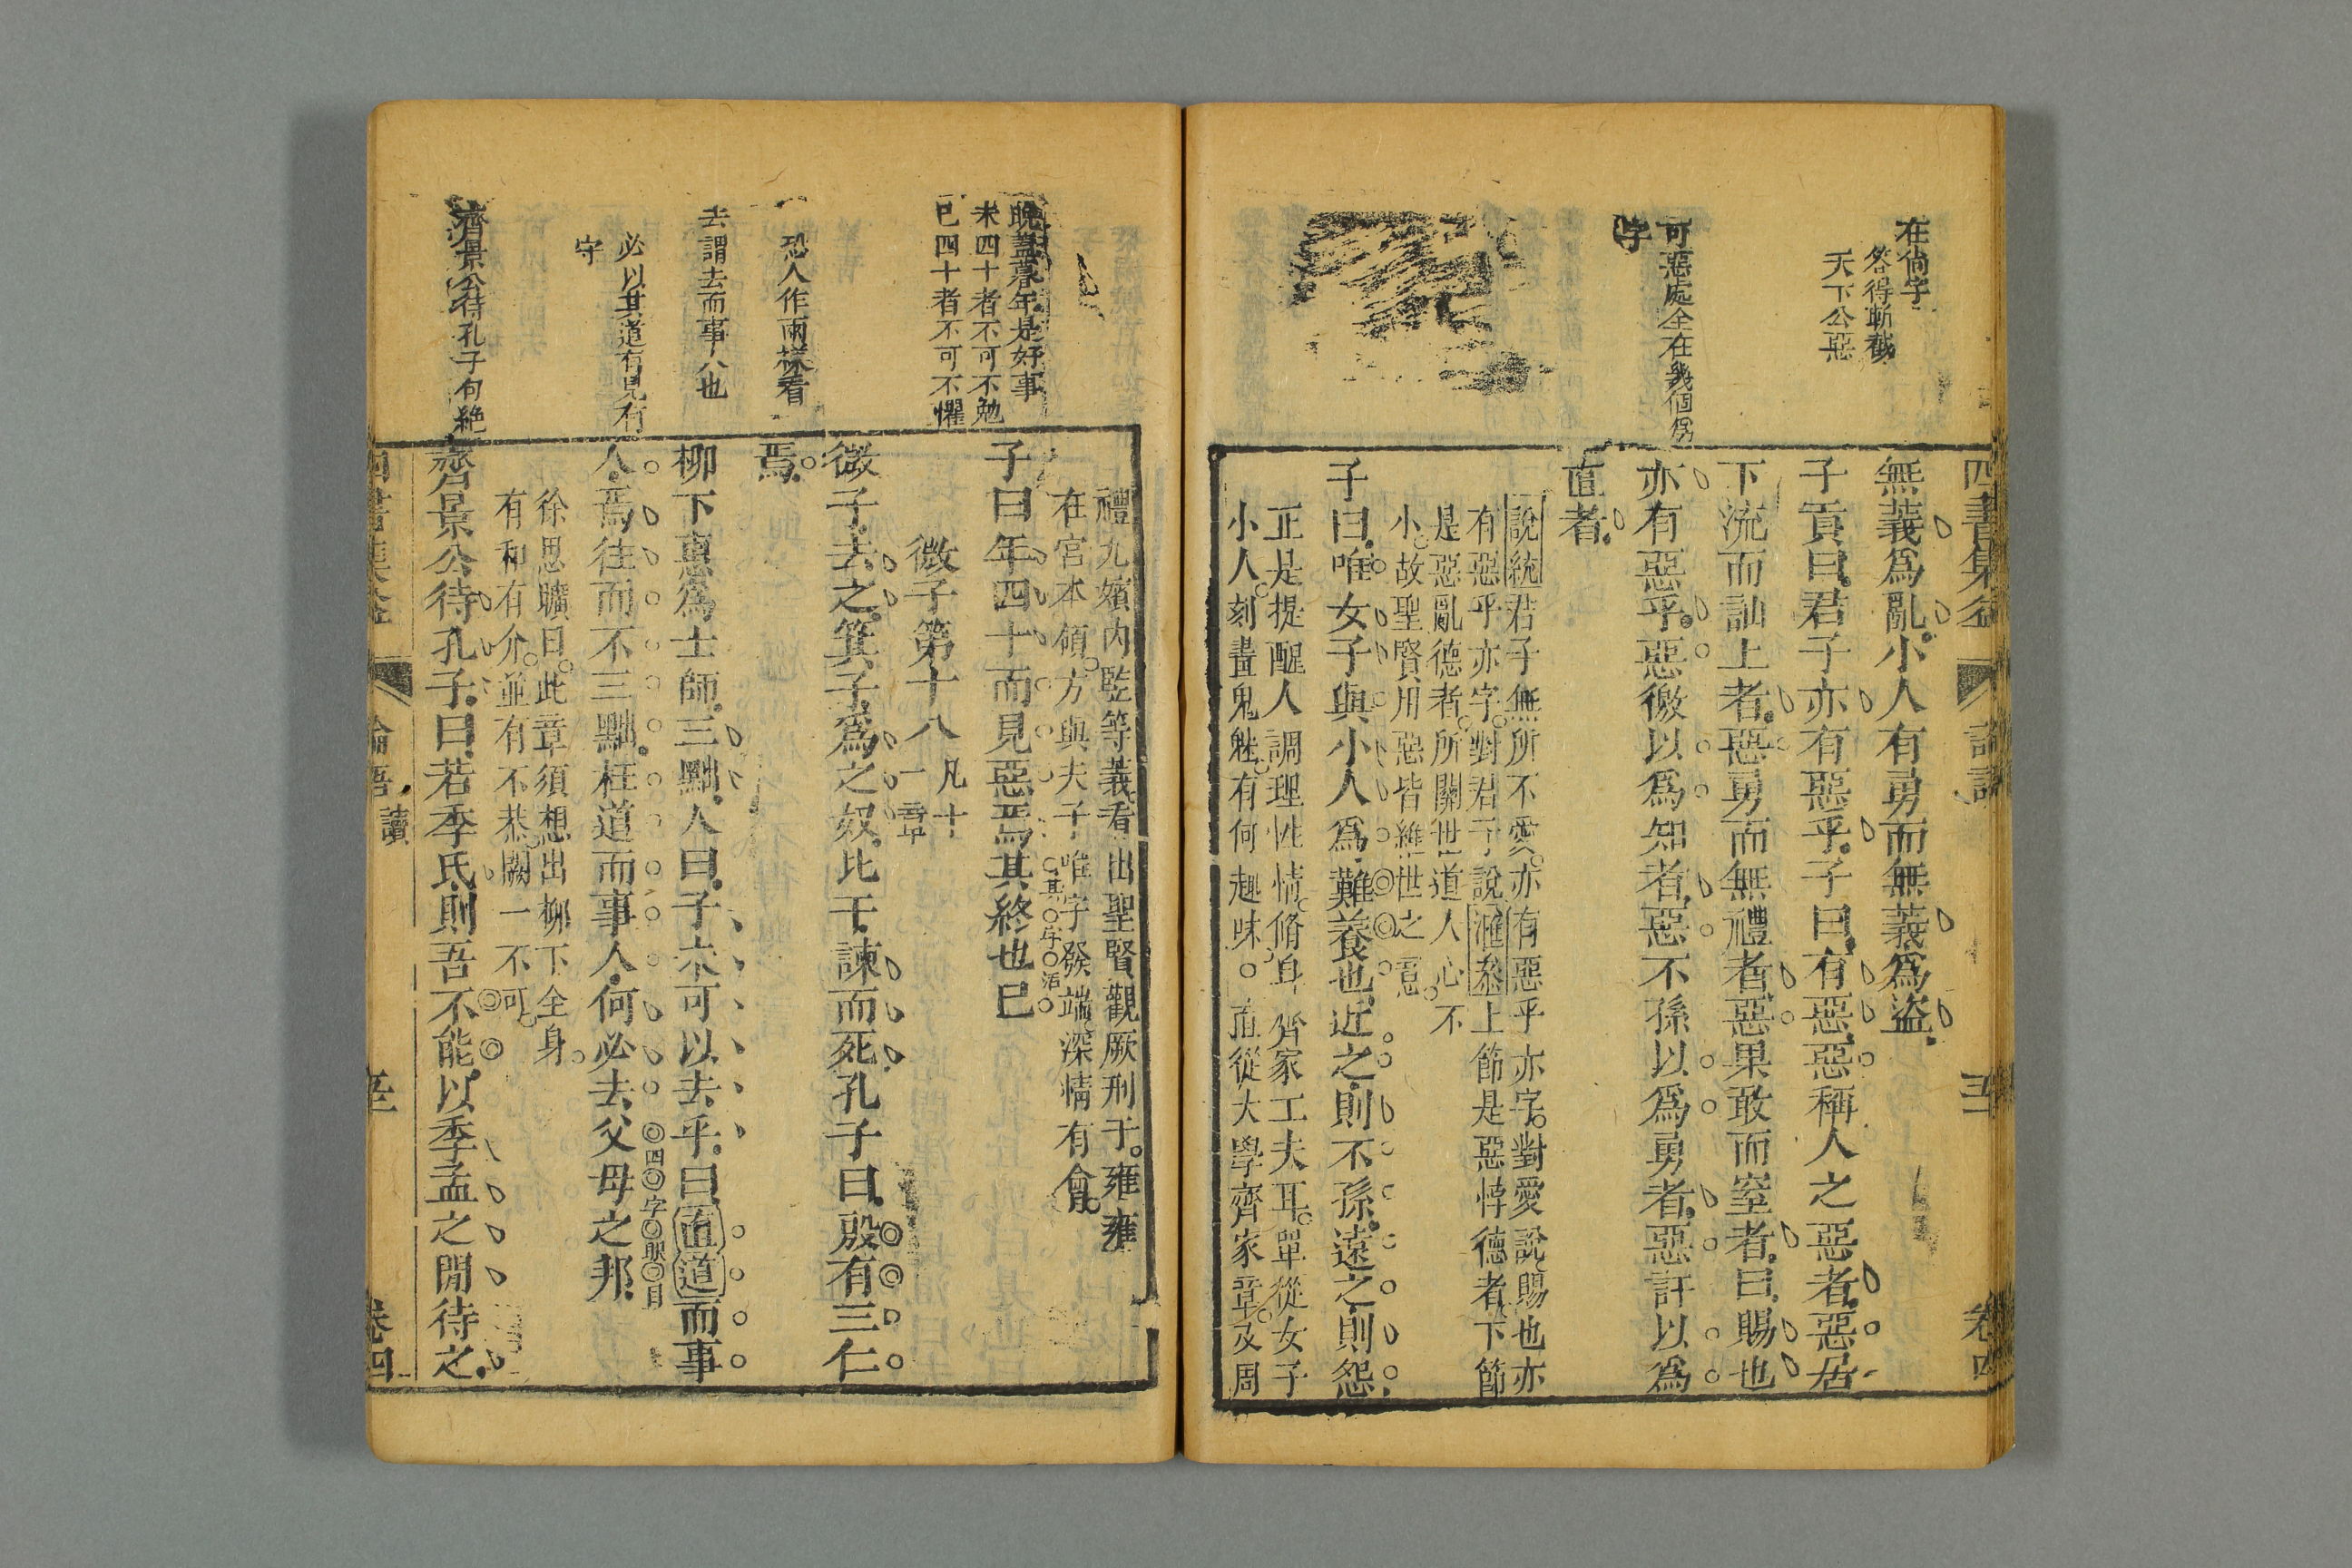 在尙字
答得斬截
天下公惡
可惡處全在幾個爲
字
無義爲亂小人有勇而無義爲盜
子貢曰君子亦有惡乎子曰有惡惡稱人之惡者惡居
下流而訕上者惡勇而無禮者惡果敢而窒者曰賜也
亦有惡乎惡徼以爲知者惡不孫以爲勇者惡訐以爲
直者
說統君子無所不愛亦有惡乎亦字對愛說賜也亦
有惡乎亦字對君子說滙叅上節是惡悖德者下節
是惡亂德者所關世道人心不
小故聖賢用惡皆維世之意
子曰唯女子與小人爲難養也近之則不孫遠之則怨
正是提醒人調理性情脩身齊家工夫耳單從女子
小人刻畫鬼魅有何趣味直從大學齊家章及周
晚蓋暮年是好事
未四十者不可不勉
已四十者不可不懼
恐人作兩樣看
去謂去而事人也
必以其道有見有
守
齊景公待孔子句絶
禮九嬪內監等義看出聖賢觀厥刑于雍雍
在宮本領方與夫子唯字發端深情有會
子曰年四十而見惡焉其終也已
其字活
微子第十八
凡十
一章
微子去之箕子爲之奴比干諫而死孔子曰殷有三仁
焉
柳下惠爲士師三黜人曰子未可以去乎曰直道而事
人焉往而不三黜枉道而事人何必去父母之邦
四字眼目
徐思曠曰此章須想出柳下全身
有和有介並有不恭闕一不可
齊景公待孔子曰若季氏則吾不能以季孟之閒待之
四書集益
論語
讀
卷四